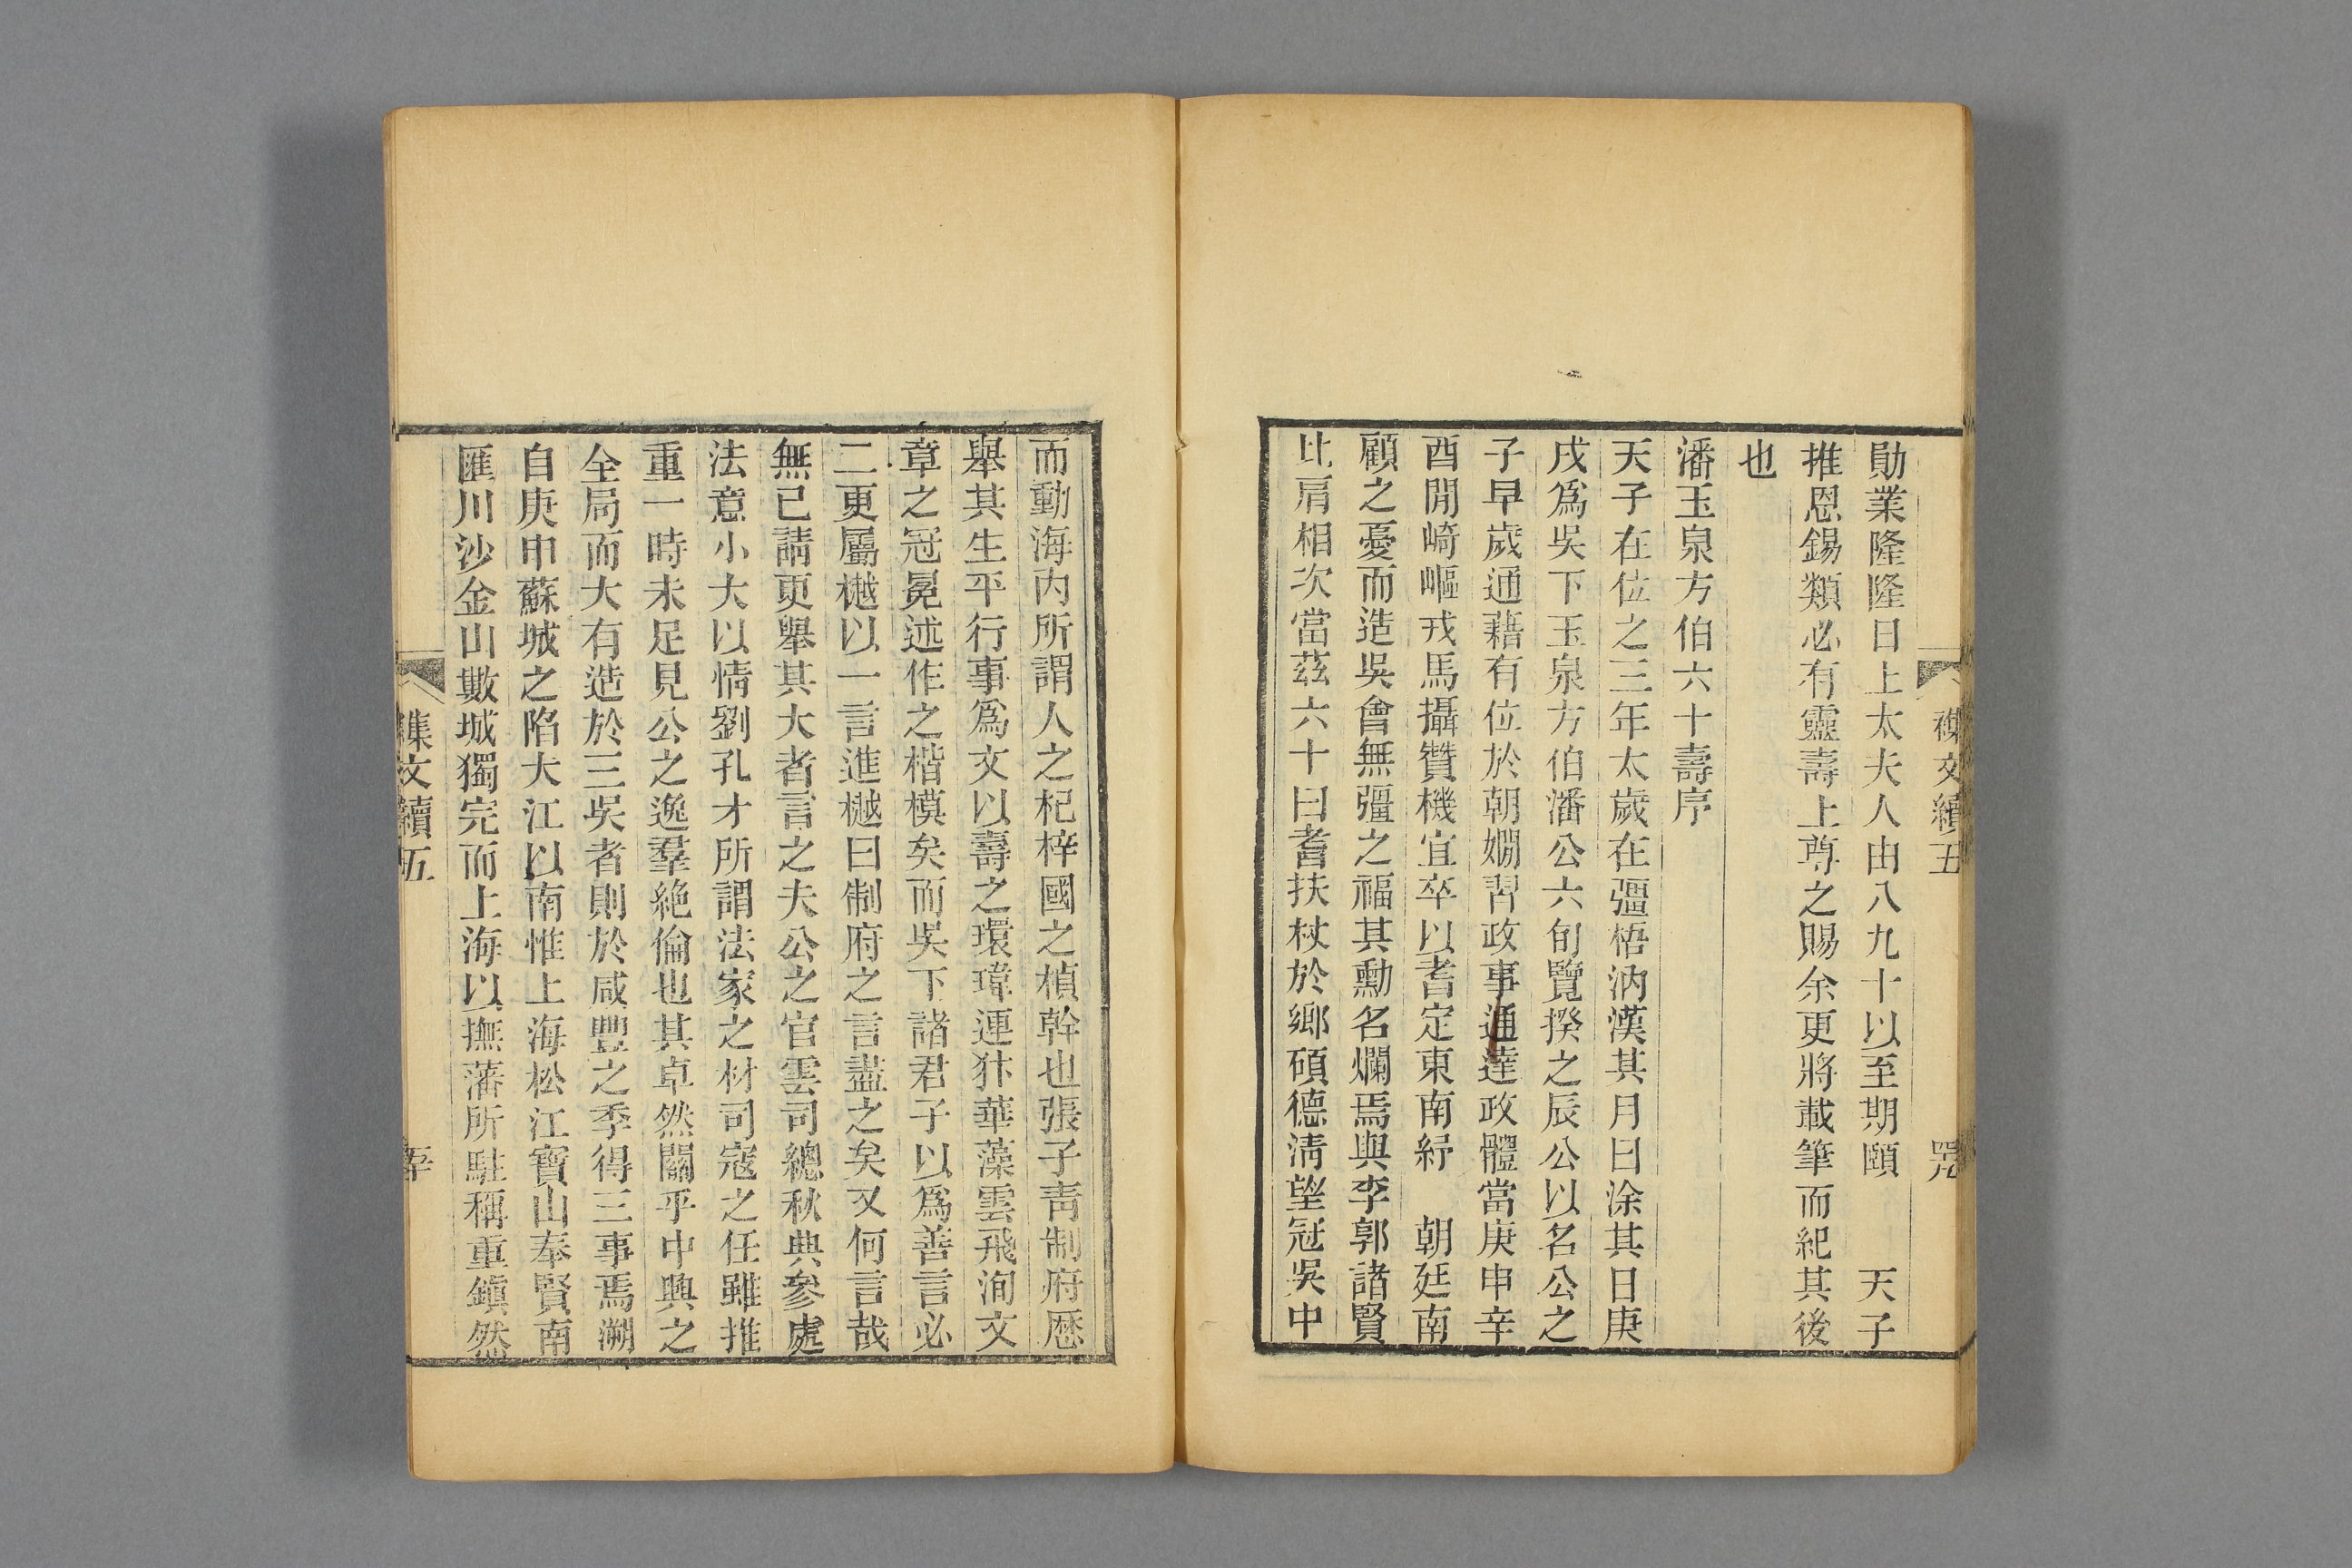 勛業隆隆日上太夫人由八九十以至期頤　天子
推恩錫類必有靈壽上尊之賜余更將載筆而紀其後
也
潘玉泉方伯六十壽序
天子在位之三年太歲在彊梧汭漢其月曰涂其日庚
戌爲吳下玉泉方伯潘公六旬覽揆之辰公以名公之
子早歲通藉有位於朝嫺習政事通達政體當庚申辛
酉閒崎嶇戎馬攝贊機宜卒以耆定東南紓　朝廷南
顧之憂而造吳會無彊之福其勳名爛焉與李郭諸賢
比肩相次當茲六十曰耆扶杖於鄉碩德淸望冠吳中
襍文續五
而動海內所謂人之杞梓國之楨幹也張子靑制府歷
舉其生平行事爲文以壽之環瑋連犿華藻雲飛洵文
章之冠冕述作之楷模矣而吳下諸君子以爲善言必
二更屬樾以一言進樾曰制府之言盡之矣又何言哉
無已請更舉其大者言之夫公之官雲司總秋典參處
法意小大以情劉孔才所謂法家之材司寇之任雖推
重一時未足見公之逸羣絶倫也其卓然關乎中興之
全局而大有造於三吳者則於咸豐之季得三事焉溯
自庚申蘇城之陷大江以南惟上海松江寶山奉賢南
匯川沙金山數城獨完而上海以撫藩所駐稱重鎭然
襍文續五